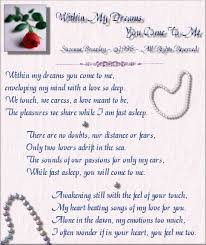 Within My Dreams,
You Come To Me.
©1998 - All Rights Reserved
Within my dreams you come to me,
enveloping my mind with a love so deep.
We touch, we caress, a love meant to be,
The pleasures we share while I am fast asleep.
There are no doubts, nor distance or fears,
Only two lovers adrift in the sea.
The sounds of our passion for only my ears,
While fast asleep, you will come to me.
Awakening still with the feel of your touch,
My heart beating songs of my love for you.
Alone in the dawn, my emotions too much,
I often wonder if in your heart, you feel me too.